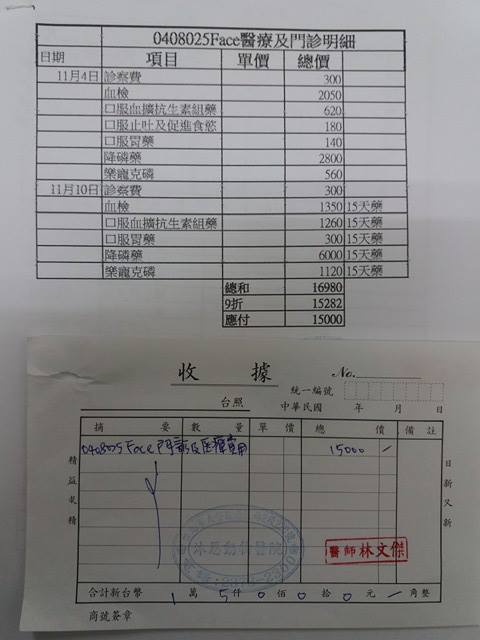 0408025Face醫療及門診明細
日期 項目 單價 總價
11月4日 診察費 300
血檢 2050
口服血擴抗生素組藥 620
口服止吐及促進食慾 180
口服胃藥 140
降磷藥 2800
樂寵克磷 560
11月10日 診察費 300
血檢 1350 15天藥
口服血擴抗生素組藥 1260 15天藥
口服胃藥 300 15天藥
降磷藥 6000 15天藥
樂寵克磷 1120 15天藥
總和 16980
9折 15282
應付 15000
收據 No.
統一編號
台照 中華民國 年 月 日
摘要 數量 單價 總價 備註
0408025 Face 門診及醫療費用 15000
精益求精
日新又新
沐恩動物醫院
醫師 林文傑
合計新台幣 1 萬 5 仟 0 佰 0 拾 0 元 角整
商號簽章